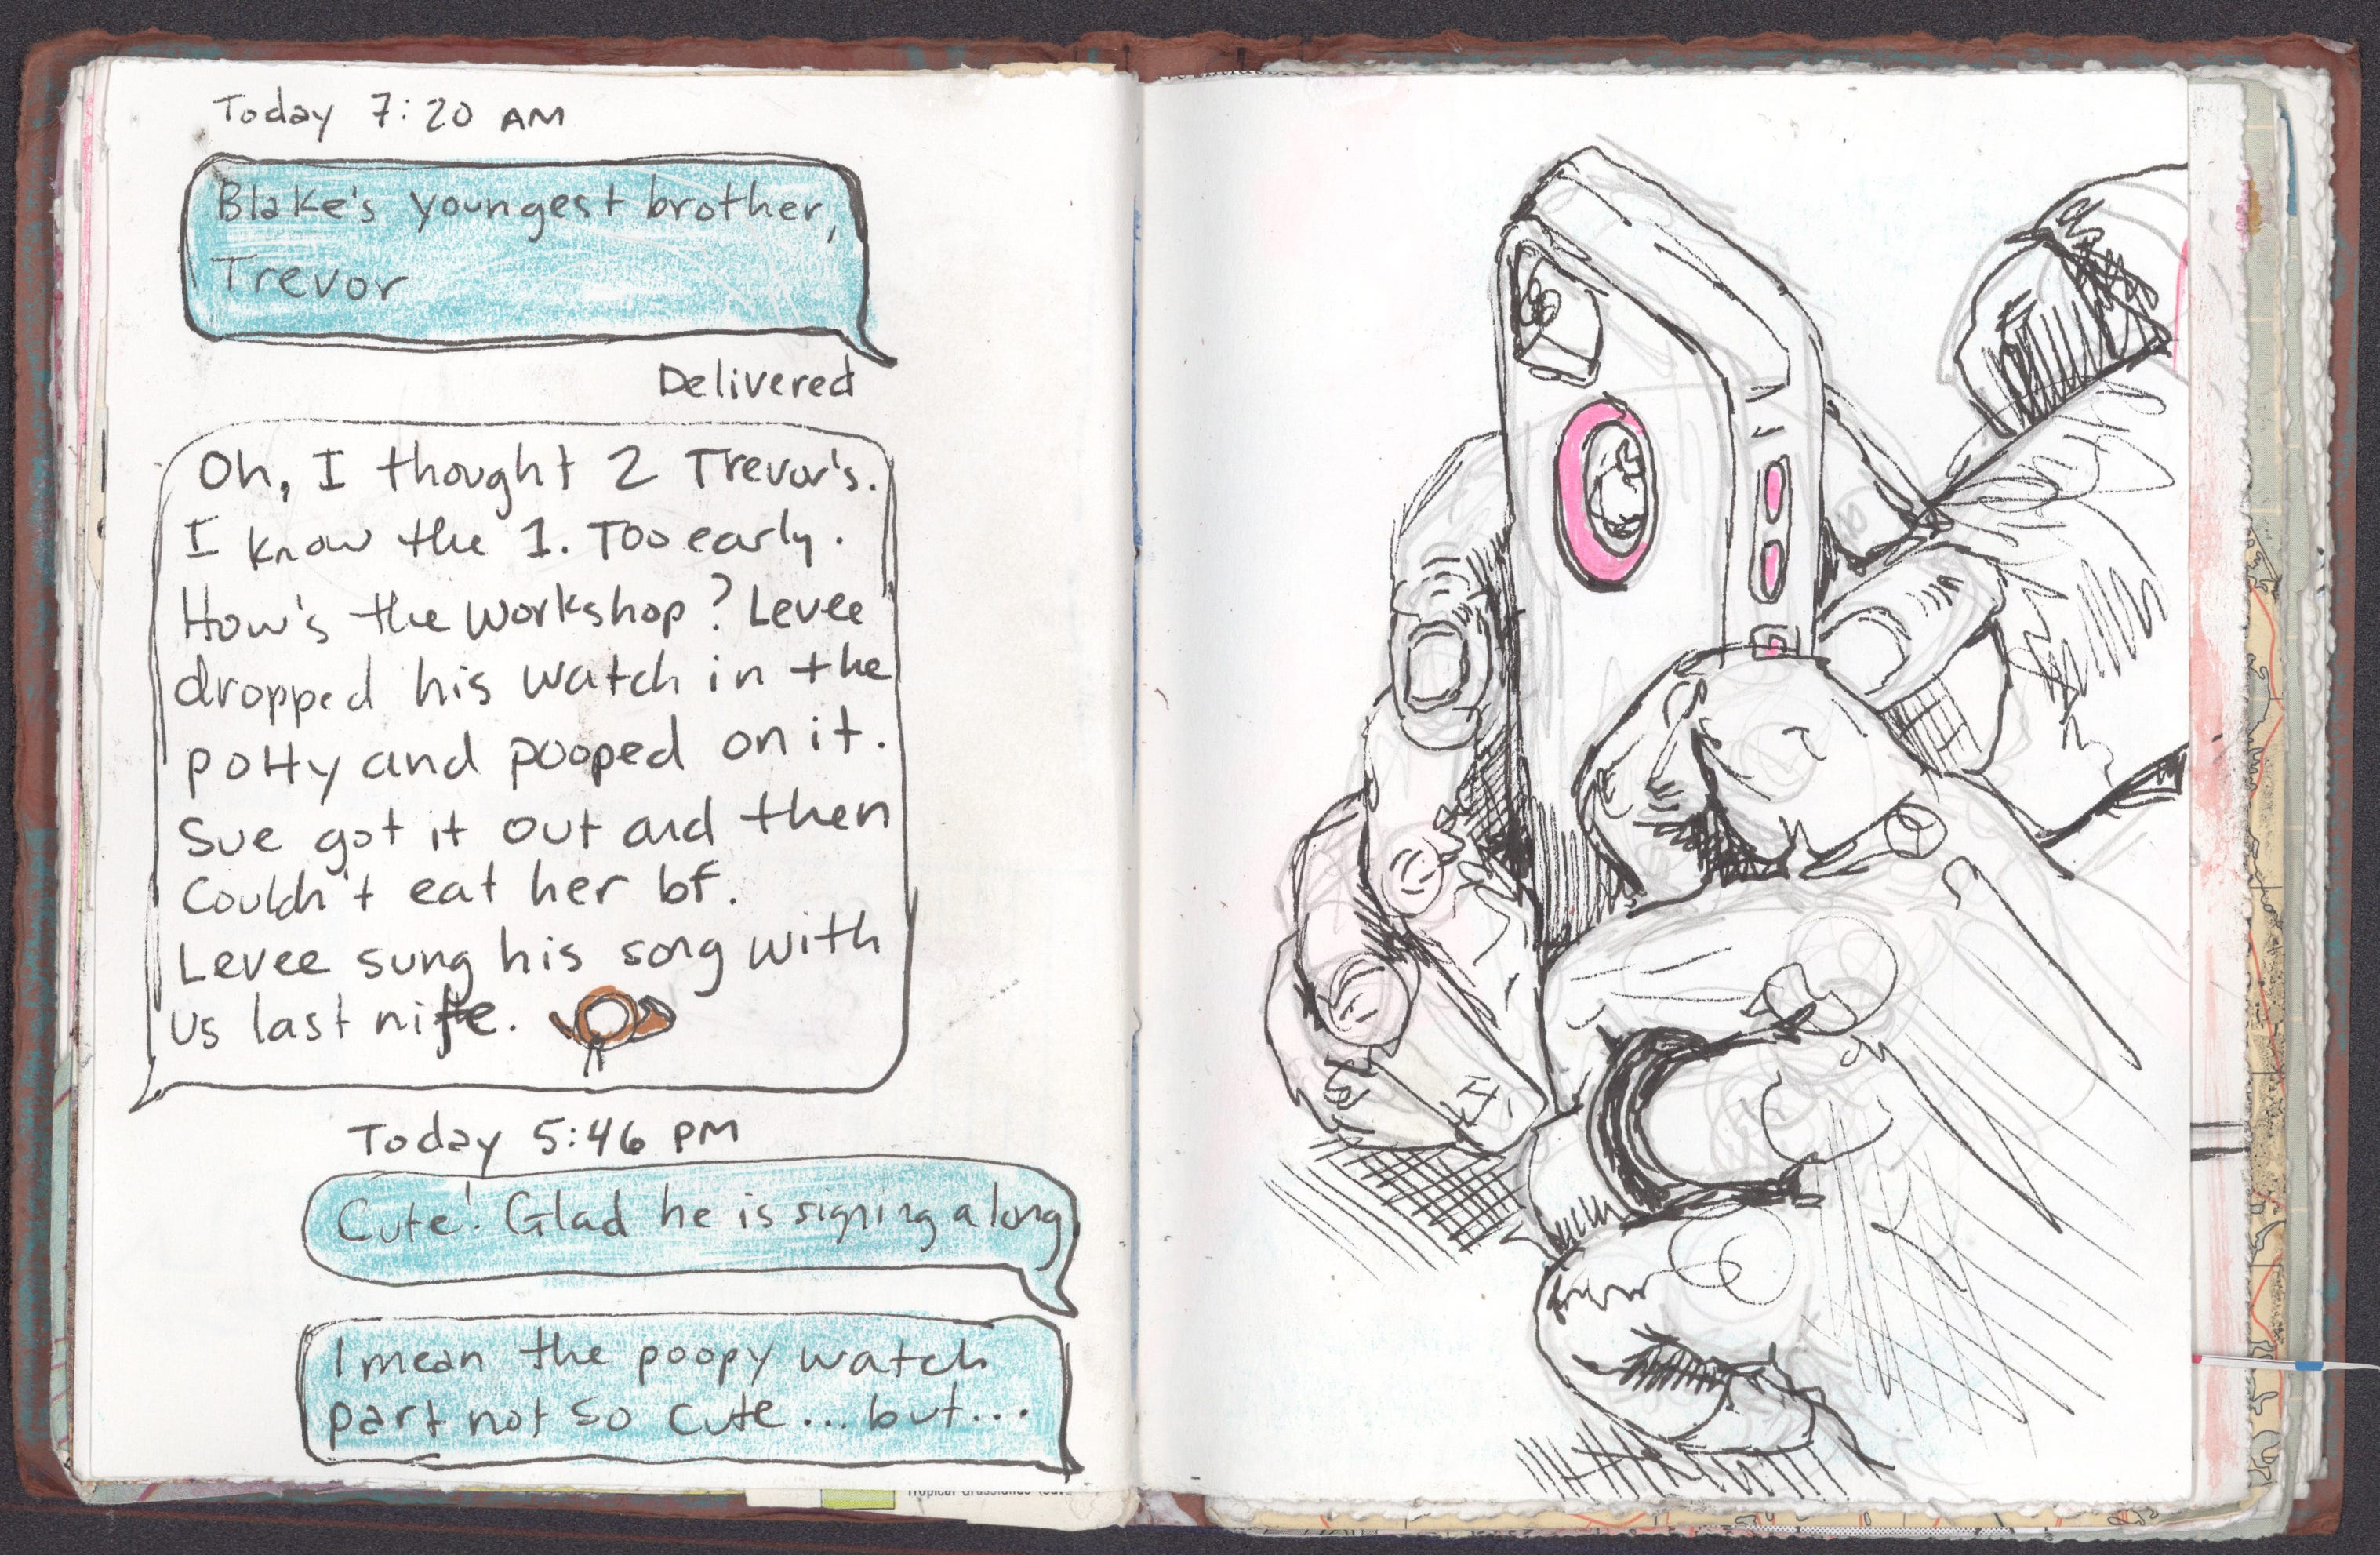 Today 7:20 AM
Blake's youngest brother,
Trevor
Delivered
Oh, I thought 2 Trevor's.
I know the 1. Too early.
How's the workshop? Levee
dropped his watch in the
potty and pooped on it.
Sue got it out and then
Couldn't eat her bf.
Levee sung his song with
us last nite.
Today 5:46 PM
Cute! Glad he is signing along
I mean the poopy watch
part not so cute... but...
Tropical Grasslands